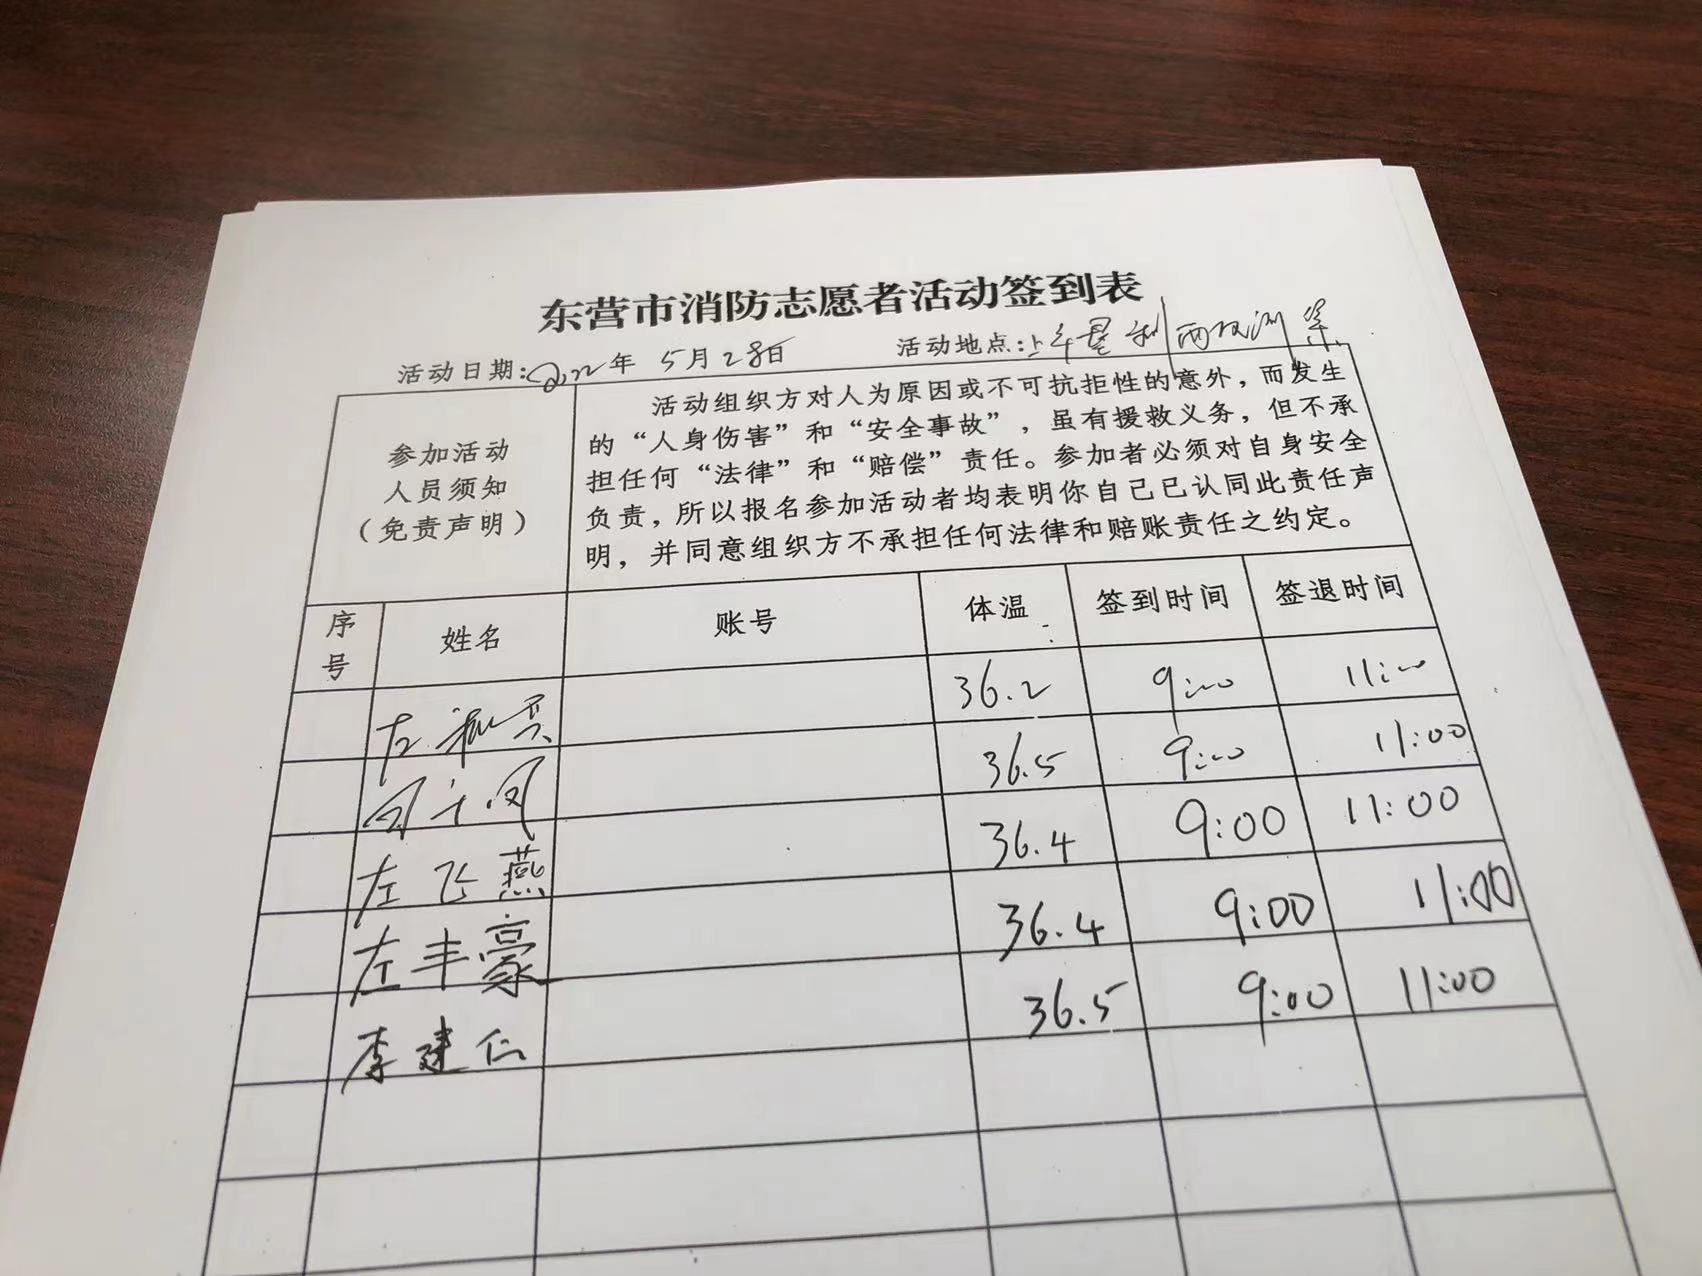 东营市消防志愿者活动签到表
活动日期:2022年 5月28日 活动地点:
参加活动
人员须知
(免责声明)
活动组织方对人为原因或不可抗拒性的意外,而发生
的“人身伤害”和“安全事故”,虽有援救义务,但不承
担任何“法律”和“赔偿”责任。参加者必须对自身安全
负责,所以报名参加活动者均表明你自己已认同此责任声
明,并同意组织方不承担任何法律和赔账责任之约定。
序号 姓名 账号 体温 签到时间 签退时间
左 36.2 9:00 11:00
36.5 9:00 11:00
左飞燕 36.4 9:00 11:00
左丰豪 36.4 9:00 11:00
李建仁 36.5 9:00 11:00